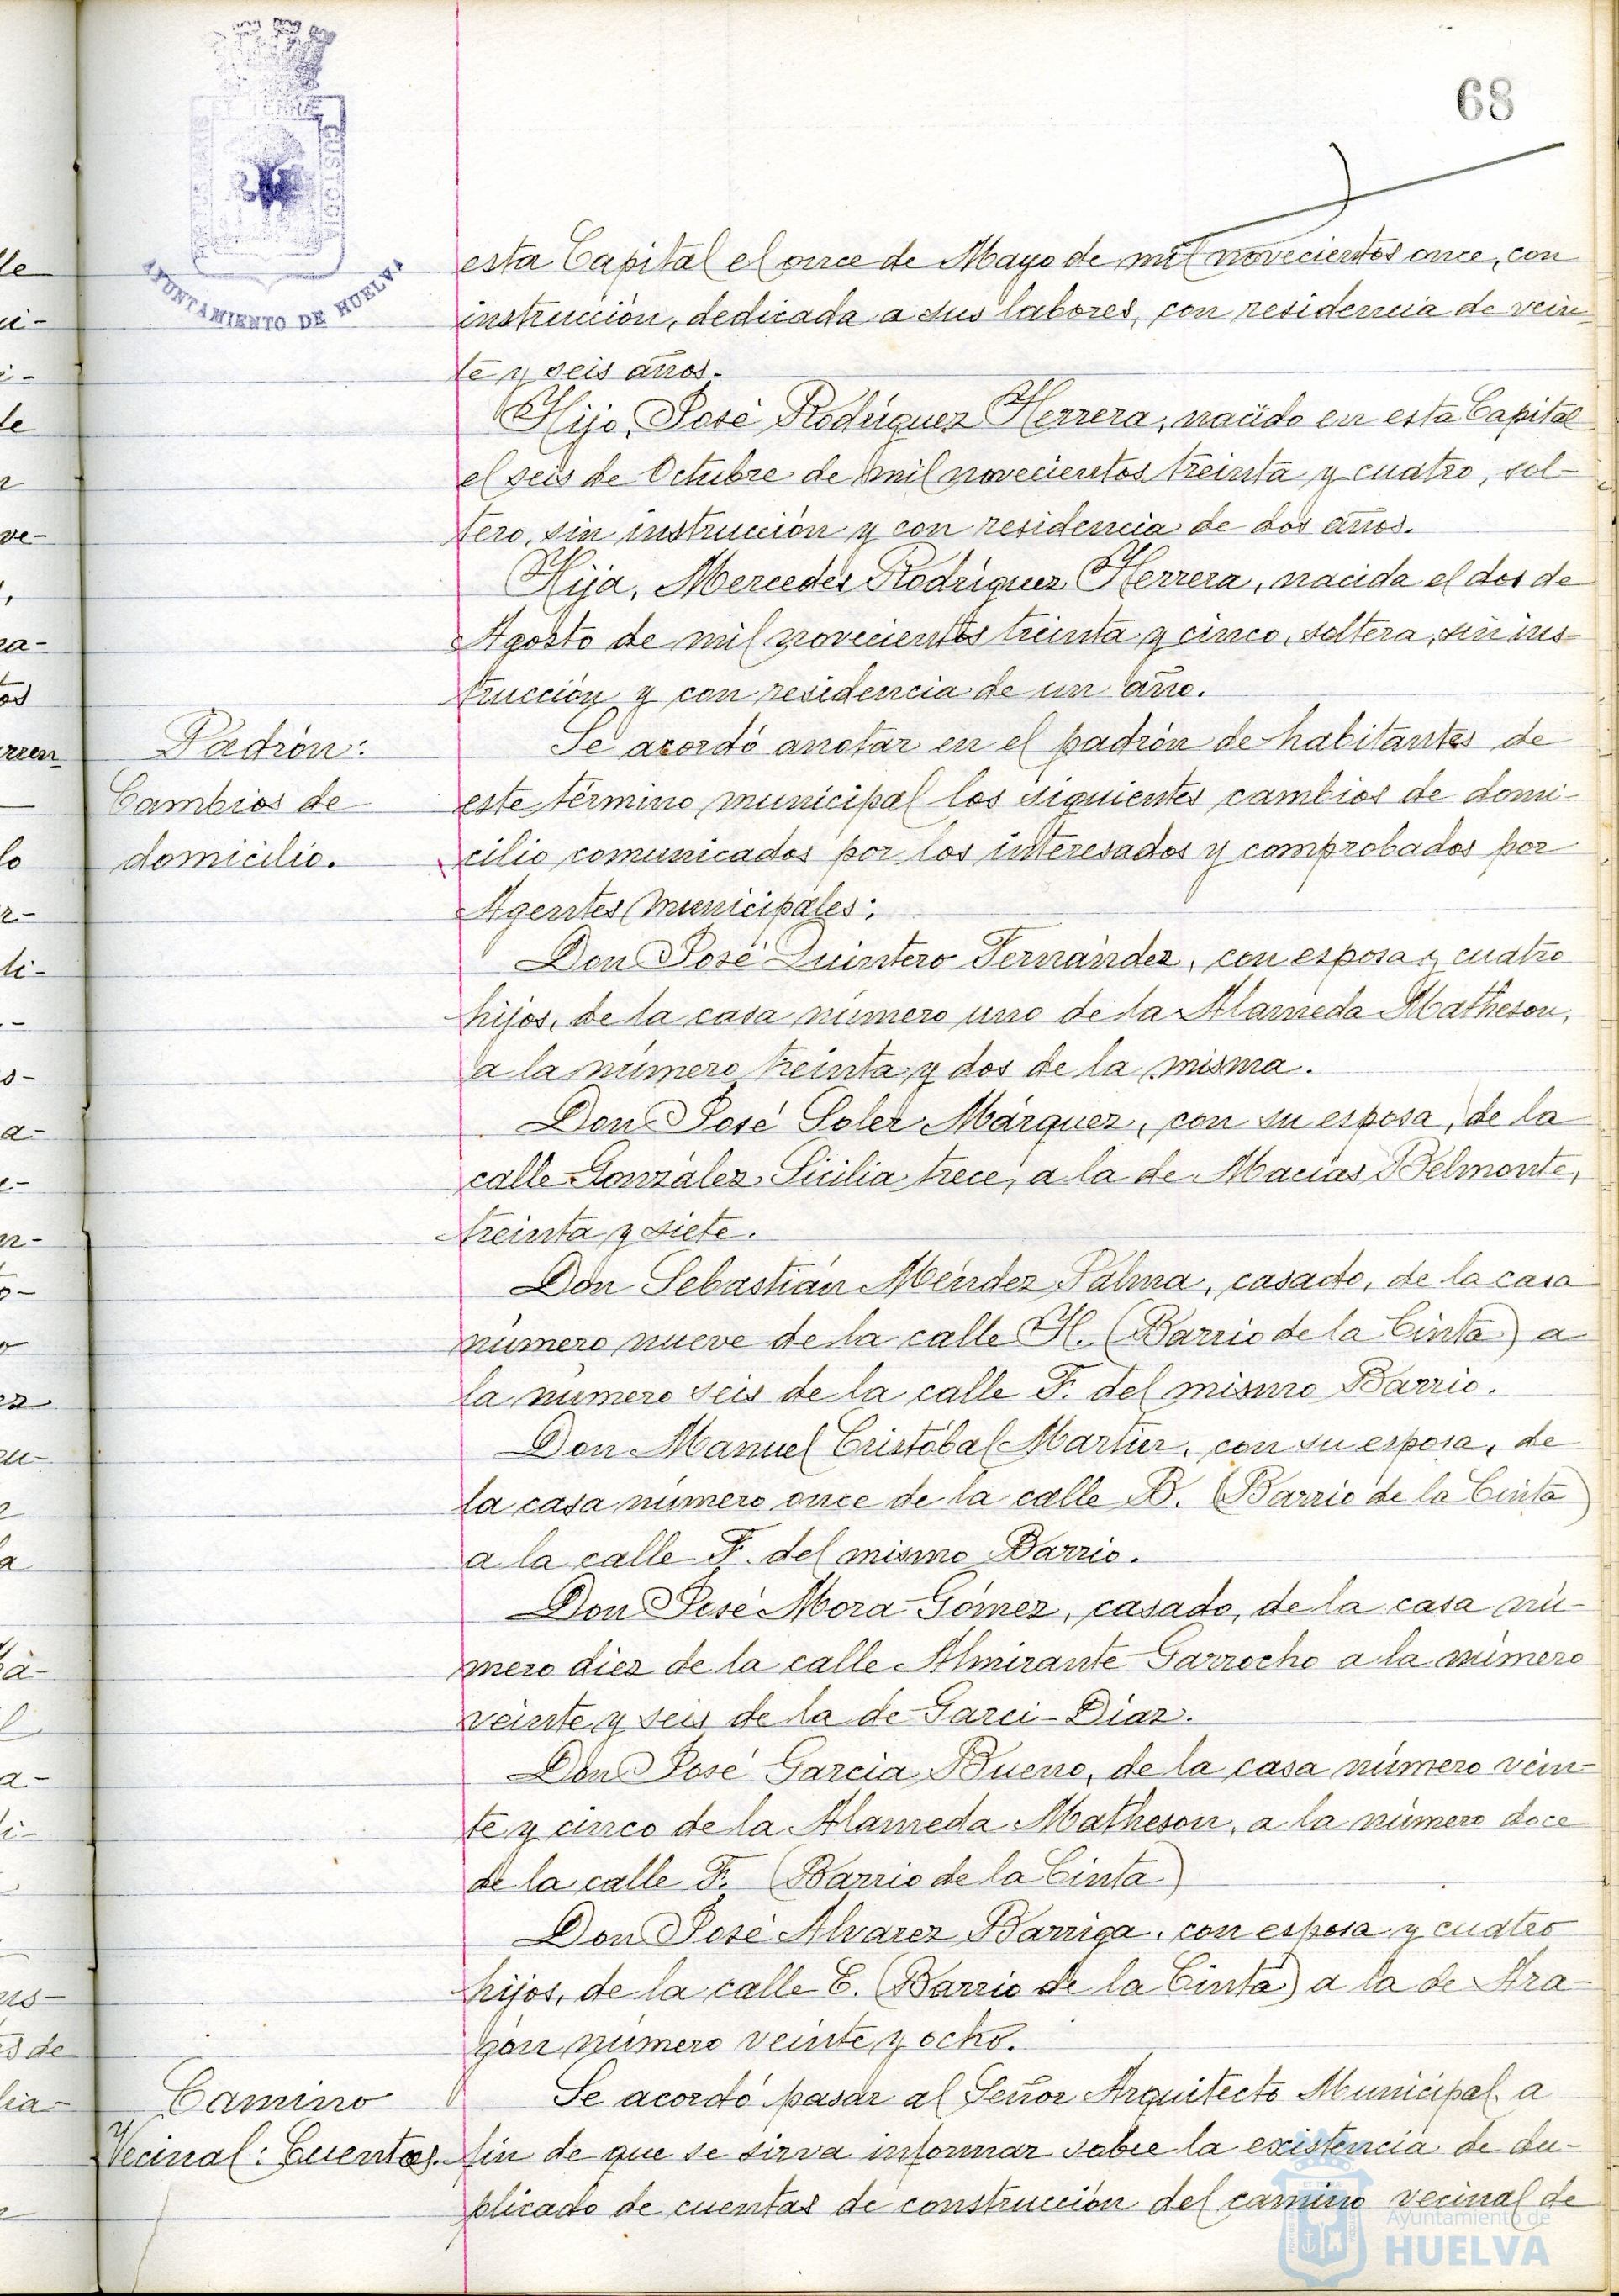 68
PORTUS MARIS ET TERRAE CUSTODIA
AYUNTAMIENTO DE HUELVA
esta Capital el once de Mayo de mil novecientos once, con
instrucción, dedicada a sus labores, con residencia de vein-
te y seis años.
Hijo, José Rodríguez Herrera, nacido en esta Capital
el seis de Octubre de mil novecientos treinta y cuatro, sol-
tero, sin instrucción y con residencia de dos años.
Hija, Mercedes Rodríguez Herrera, nacida el dos de
Agosto de mil novecientos treinta y cinco, soltera, sin ins-
trucción y con residencia de un año.
Padrón:
Cambios de
domicilio.
Se acordó anotar en el padrón de habitantes de
este término municipal los siguientes cambios de domi-
cilio comunicados por los interesados y comprobados por
Agentes municipales:
Don José Quintero Fernández, con esposa y cuatro
hijos, de la casa número uno de la Alameda Matheson,
a la número treinta y dos de la misma.
Don José Soler Márquez, con su esposa, de la
calle González Sicilia trece, a la de Macías Belmonte,
treinta y siete.
Don Sebastián Méndez Palma, casado, de la casa
número nueve de la calle H. (Barrio de la Cinta) a
la número seis de la calle F. del mismo Barrio.
Don Manuel Cristóbal Martín, con su esposa, de
la casa número once de la calle B. (Barrio de la Cinta)
a la calle F. del mismo Barrio.
Don José Mora Gómez, casado, de la casa nú-
mero diez de la calle Almirante Garrocho a la número
veinte y seis de la de Garci-Díaz.
Don José García Bueno, de la casa número vein-
te y cinco de la Alameda Matheson, a la número doce
de la calle F. (Barrio de la Cinta)
Don José Alvarez Barriga, con esposa y cuatro
hijos, de la calle E. (Barrio de la Cinta) a la de Ara-
gón número veinte y ocho.
Camino
Vecinal: Cuentas.
Se acordó pasar al Señor Arquitecto Municipal a
fin de que se sirva informar sobre la existencia de du-
plicado de cuentas de construcción del camino vecinal de
Ayuntamiento de
HUELVA